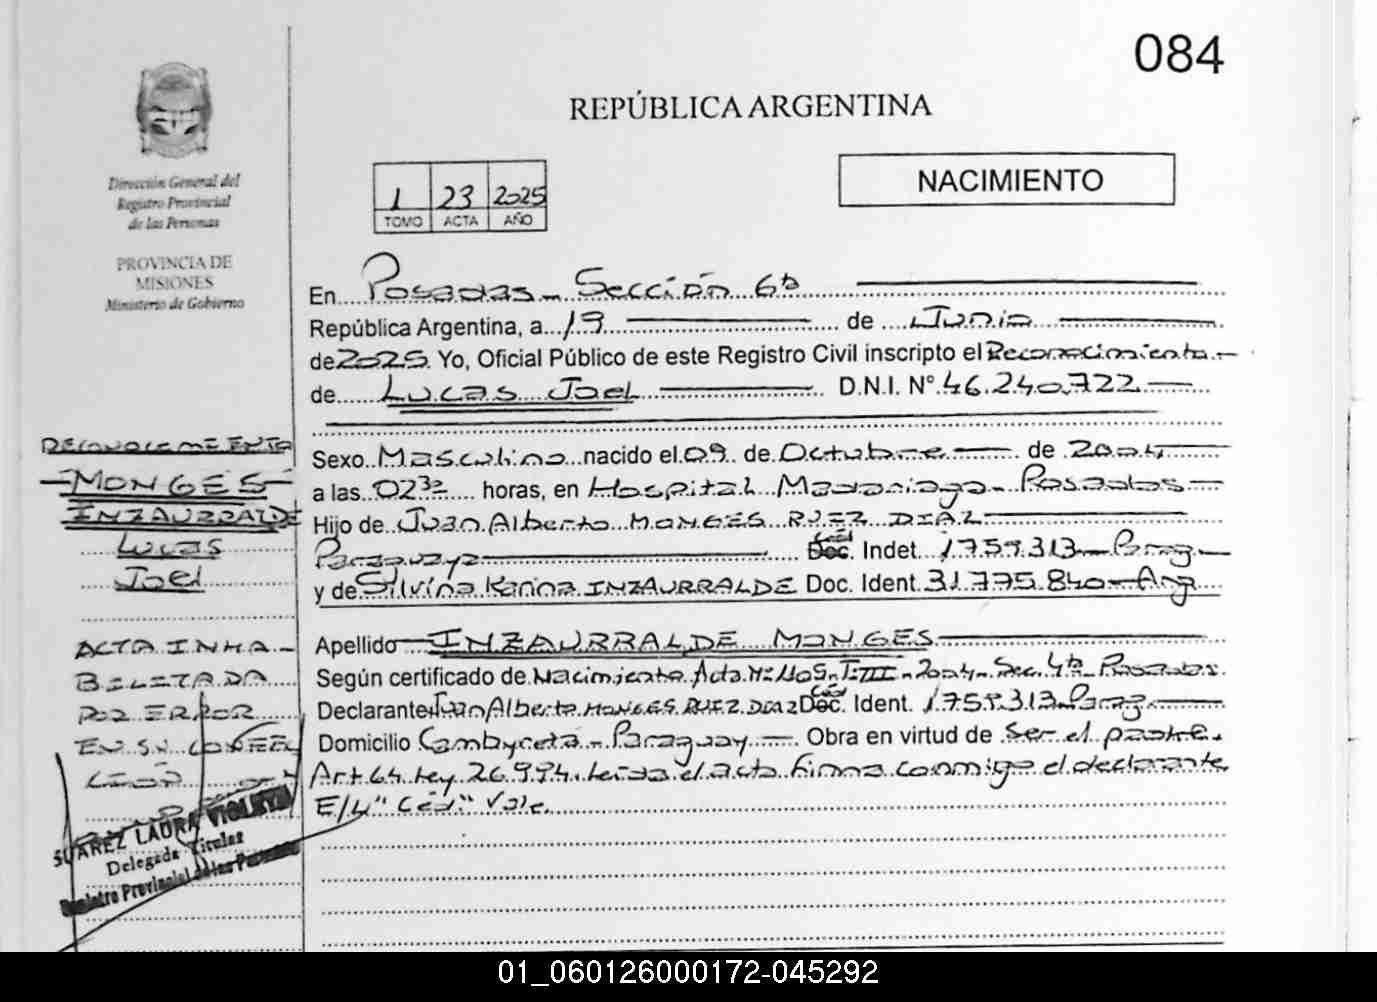 084
REPÚBLICA ARGENTINA
NACIMIENTO
1 23 2025
TOMO ACTA AÑO
Dirección General del
Registro Provincial
de las Personas
PROVINCIA DE
MISIONES
Ministerio de Gobierno
En Posadas - Sección 6ta
República Argentina, a 19 de Junio
de 2025 Yo, Oficial Público de este Registro Civil inscripto el Reconocimiento
de Lucas Joel D.N.I. Nº 46.240.722
Sexo Masculino nacido el 09 de Octubre de 2004
a las 02 30 horas, en Hospital Madariaga - Posadas
Hijo de Juan Alberto MONGES RUIZ DIAZ
Paraguaya Doc. Céd. Indet. 1.759.313 - Parag
y de Silvina Karina INZAURRALDE Doc. Ident. 31.775.840 - Arg
Apellido INZAURRALDE MONGES
Según certificado de Nacimiento Acta Nº 1105 - T: III - 2004 - Sec. 4ta Posadas.
Declarante Juan Alberto MONGES RUIZ DIAZ Doc. Céd. Ident. 1.759.313 Parag
Domicilio Cambyreta - Paraguay Obra en virtud de Ser el padre.
Art. 64 Ley 26.994. Leida el acta firma conmigo el declarante
E/L "Céd." Vale.
RECONOCIMIENTO
MONGES
INZAURRALDE
Lucas
Joel
ACTA INHA-
BILITADA
POR ERROR
EN SU CONFEC
CION
SUAREZ LAURA VIOLETA
Delegada Titular
Registro Provincial de las Personas
01_060126000172-045292